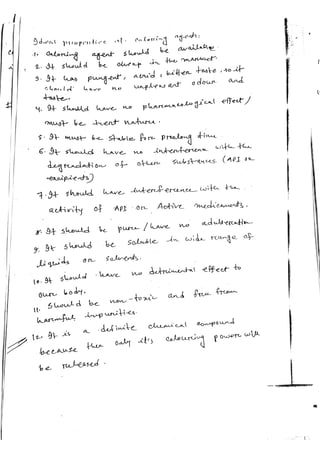 Ideal properties of colouring agents:
1. Colouring agent should be available
2. It should be cheap in the market
3. It has pungent, acrid, bitter taste, so it
should have no unpleasant odour and
taste.
4. It should have no pharmacological effect/
must be inert nature.
5. It must be stable for prolong time
6. It should have no interference with the
degradation of other substances (API or
excipients)
7. It should have interference with the
activity of API or Active medicaments.
8. It should be pure / have no adulteration
9. It should be soluble in wide range of
liquids or solvents.
10. It should have no detrimental effect to
our body.
11. Should be non-toxic and free from
harmful impurities.
12. It is a definite chemical compound
because then only it's colouring power will
be released.